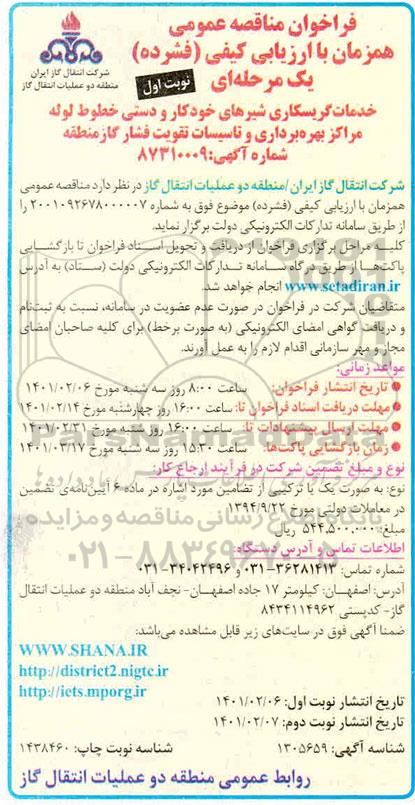 فراخوان مناقصه عمومی
همزمان با ارزیابی کیفی (فشرده)
یک مرحله‌ای
نوبت اول
شرکت انتقال گاز ایران
منطقه دو عملیات انتقال گاز
خدمات گریسکاری شیرهای خودکار و دستی خطوط لوله
مراکز بهره‌برداری و تاسیسات تقویت فشار گاز منطقه
شماره آگهی: ۸۷۳۱۰۰۰۹
شرکت انتقال گاز ایران/منطقه دو عملیات انتقال گاز در نظر دارد مناقصه عمومی
همزمان با ارزیابی کیفی (فشرده) موضوع فوق به شماره ۲۰۰۱۰۹۲۶۷۸۰۰۰۰۰۷ را
از طریق سامانه تدارکات الکترونیکی دولت برگزار نماید.
کلیه مراحل برگزاری فراخوان از دریافت و تحویل اسناد فراخوان تا بازگشایی
پاکت‌ها از طریق درگاه سامانه تدارکات الکترونیکی دولت (ستاد) به آدرس
www.setadiran.ir انجام خواهد شد.
متقاضیان شرکت در فراخوان در صورت عدم عضویت در سامانه، نسبت به ثبت‌نام
و دریافت گواهی امضای الکترونیکی (به صورت برخط) برای کلیه صاحبان امضای
مجاز و مهر سازمانی اقدام لازم را به عمل آورند.
مواعد زمانی:
تاریخ انتشار فراخوان: ساعت ۸:۰۰ روز سه شنبه مورخ ۱۴۰۱/۰۲/۰۶
مهلت دریافت اسناد فراخوان تا: ساعت ۱۶:۰۰ روز چهارشنبه مورخ ۱۴۰۱/۰۲/۱۴
مهلت ارسال پیشنهادات تا: ساعت ۱۶:۰۰ روز شنبه مورخ ۱۴۰۱/۰۲/۳۱
زمان بازگشایی پاکت‌ها: ساعت ۱۵:۳۰ روز سه شنبه مورخ ۱۴۰۱/۰۳/۱۷
نوع و مبلغ تضمین شرکت در فرآیند ارجاع کار:
نوع: به صورت یک یا ترکیبی از تضامین مورد اشاره در ماده ۶ آیین‌نامه‌ی تضمین
در معاملات دولتی مورخ ۱۳۹۴/۹/۲۲
مبلغ: ۵۴۴,۵۰۰,۰۰۰ ریال
اطلاعات تماس و آدرس دستگاه:
شماره تماس: ۳۶۲۸۱۴۱۳-۰۳۱ و ۳۴۰۴۲۴۹۶-۰۳۱
آدرس: اصفهان: کیلومتر ۱۷ جاده اصفهان- نجف آباد منطقه دو عملیات انتقال
گاز- کدپستی ۸۴۳۴۱۱۴۹۶۲
ضمنا آگهی فوق در سایت‌های زیر قابل مشاهده می‌باشد:
WWW.SHANA.IR
http://district2.nigtc.ir
http://iets.mporg.ir
تاریخ انتشار نوبت اول: ۱۴۰۱/۰۲/۰۶
تاریخ انتشار نوبت دوم: ۱۴۰۱/۰۲/۰۷
شناسه آگهی: ۱۳۰۵۶۵۹ شناسه نوبت چاپ: ۱۴۳۸۴۶۰
روابط عمومی منطقه دو عملیات انتقال گاز
ParsNamadData